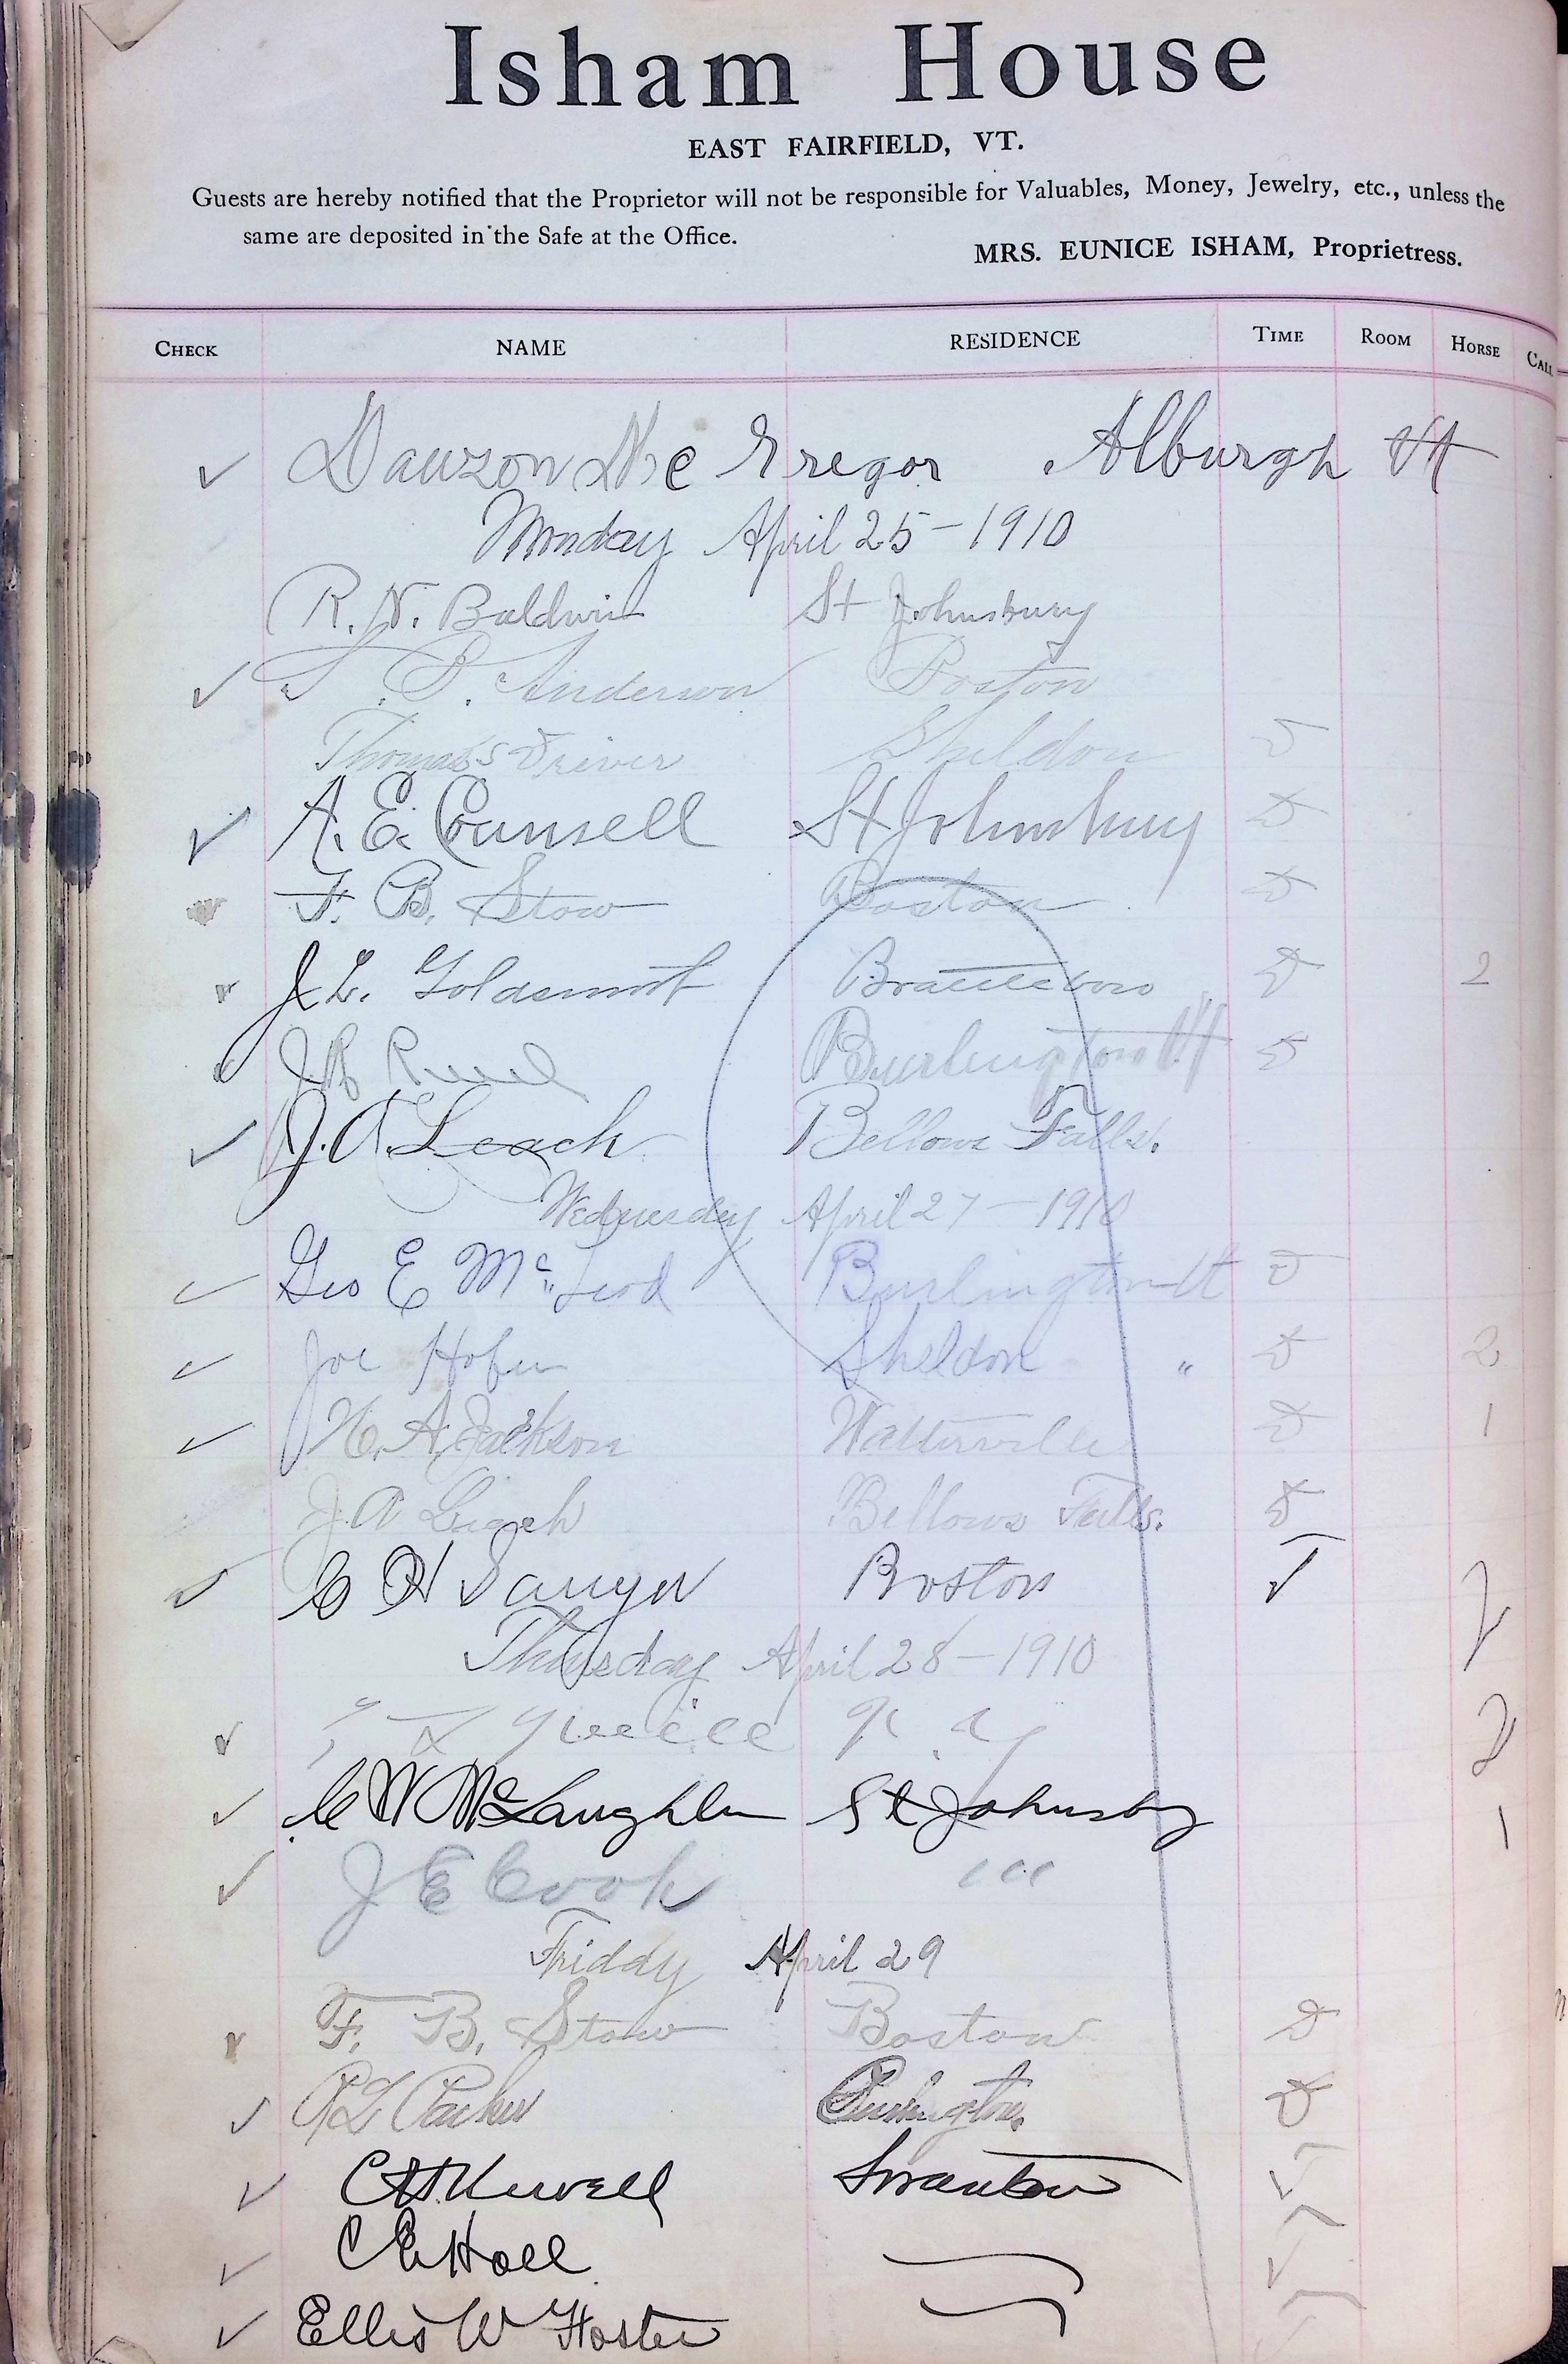 Isham House
EAST FAIRFIELD, VT.
Guests are hereby notified that the Proprietor will not be responsible for Valuables, Money, Jewelry, etc., unless the
same are deposited in the Safe at the Office.
MRS. EUNICE ISHAM, Proprietress.
CHECK NAME RESIDENCE TIME ROOM HORSE CALL
Dawzon Mc Gregor Alburgh Vt
Monday April 25-1910
R. N. Baldwin St Johnsbury
P. Anderson Boston
Thomas Driver Sheldon
A. E. Counsell St Johnsbury
F. B. Stow Boston
J. L. Goldsmith Brattleboro 2
J. R. Burlington Vt
J. A. Leach Bellows Falls.
Wednesday April 27-1910
Geo E McLeod Burlington Vt
Joe Sheldon " 2
H. A. Jackson Watterville 1
J. A Leach Bellows Falls.
C H Sawyer Boston
Thursday April 28-1910 2
N. Y 2
C W McLaughlin St Johnsby 1
J E Cook " "
Friday April 29
F. B. Stow Boston
Parker Burlington
Swanton
C E Hall
Ellis W Foster